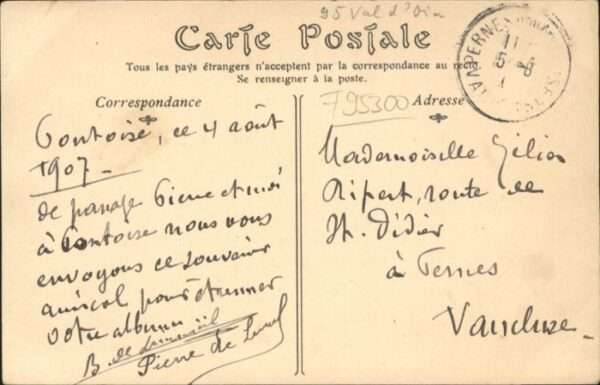 95 Val d'Oise
Carte Postale
Tous les pays étrangers n'acceptent par la correspondance au recto
Se renseigner à la poste.
Correspondance
F95300
Adresse
Pontoise, ce 4 août
1907
de passage Pierre et moi
à Pontoise nous vous
envoyons ce souvenir
amical pour étrenner
votre album
B. de
Pierre de
Mademoiselle
Ripert, route de
St. Didier
à Pernes
Vaucluse